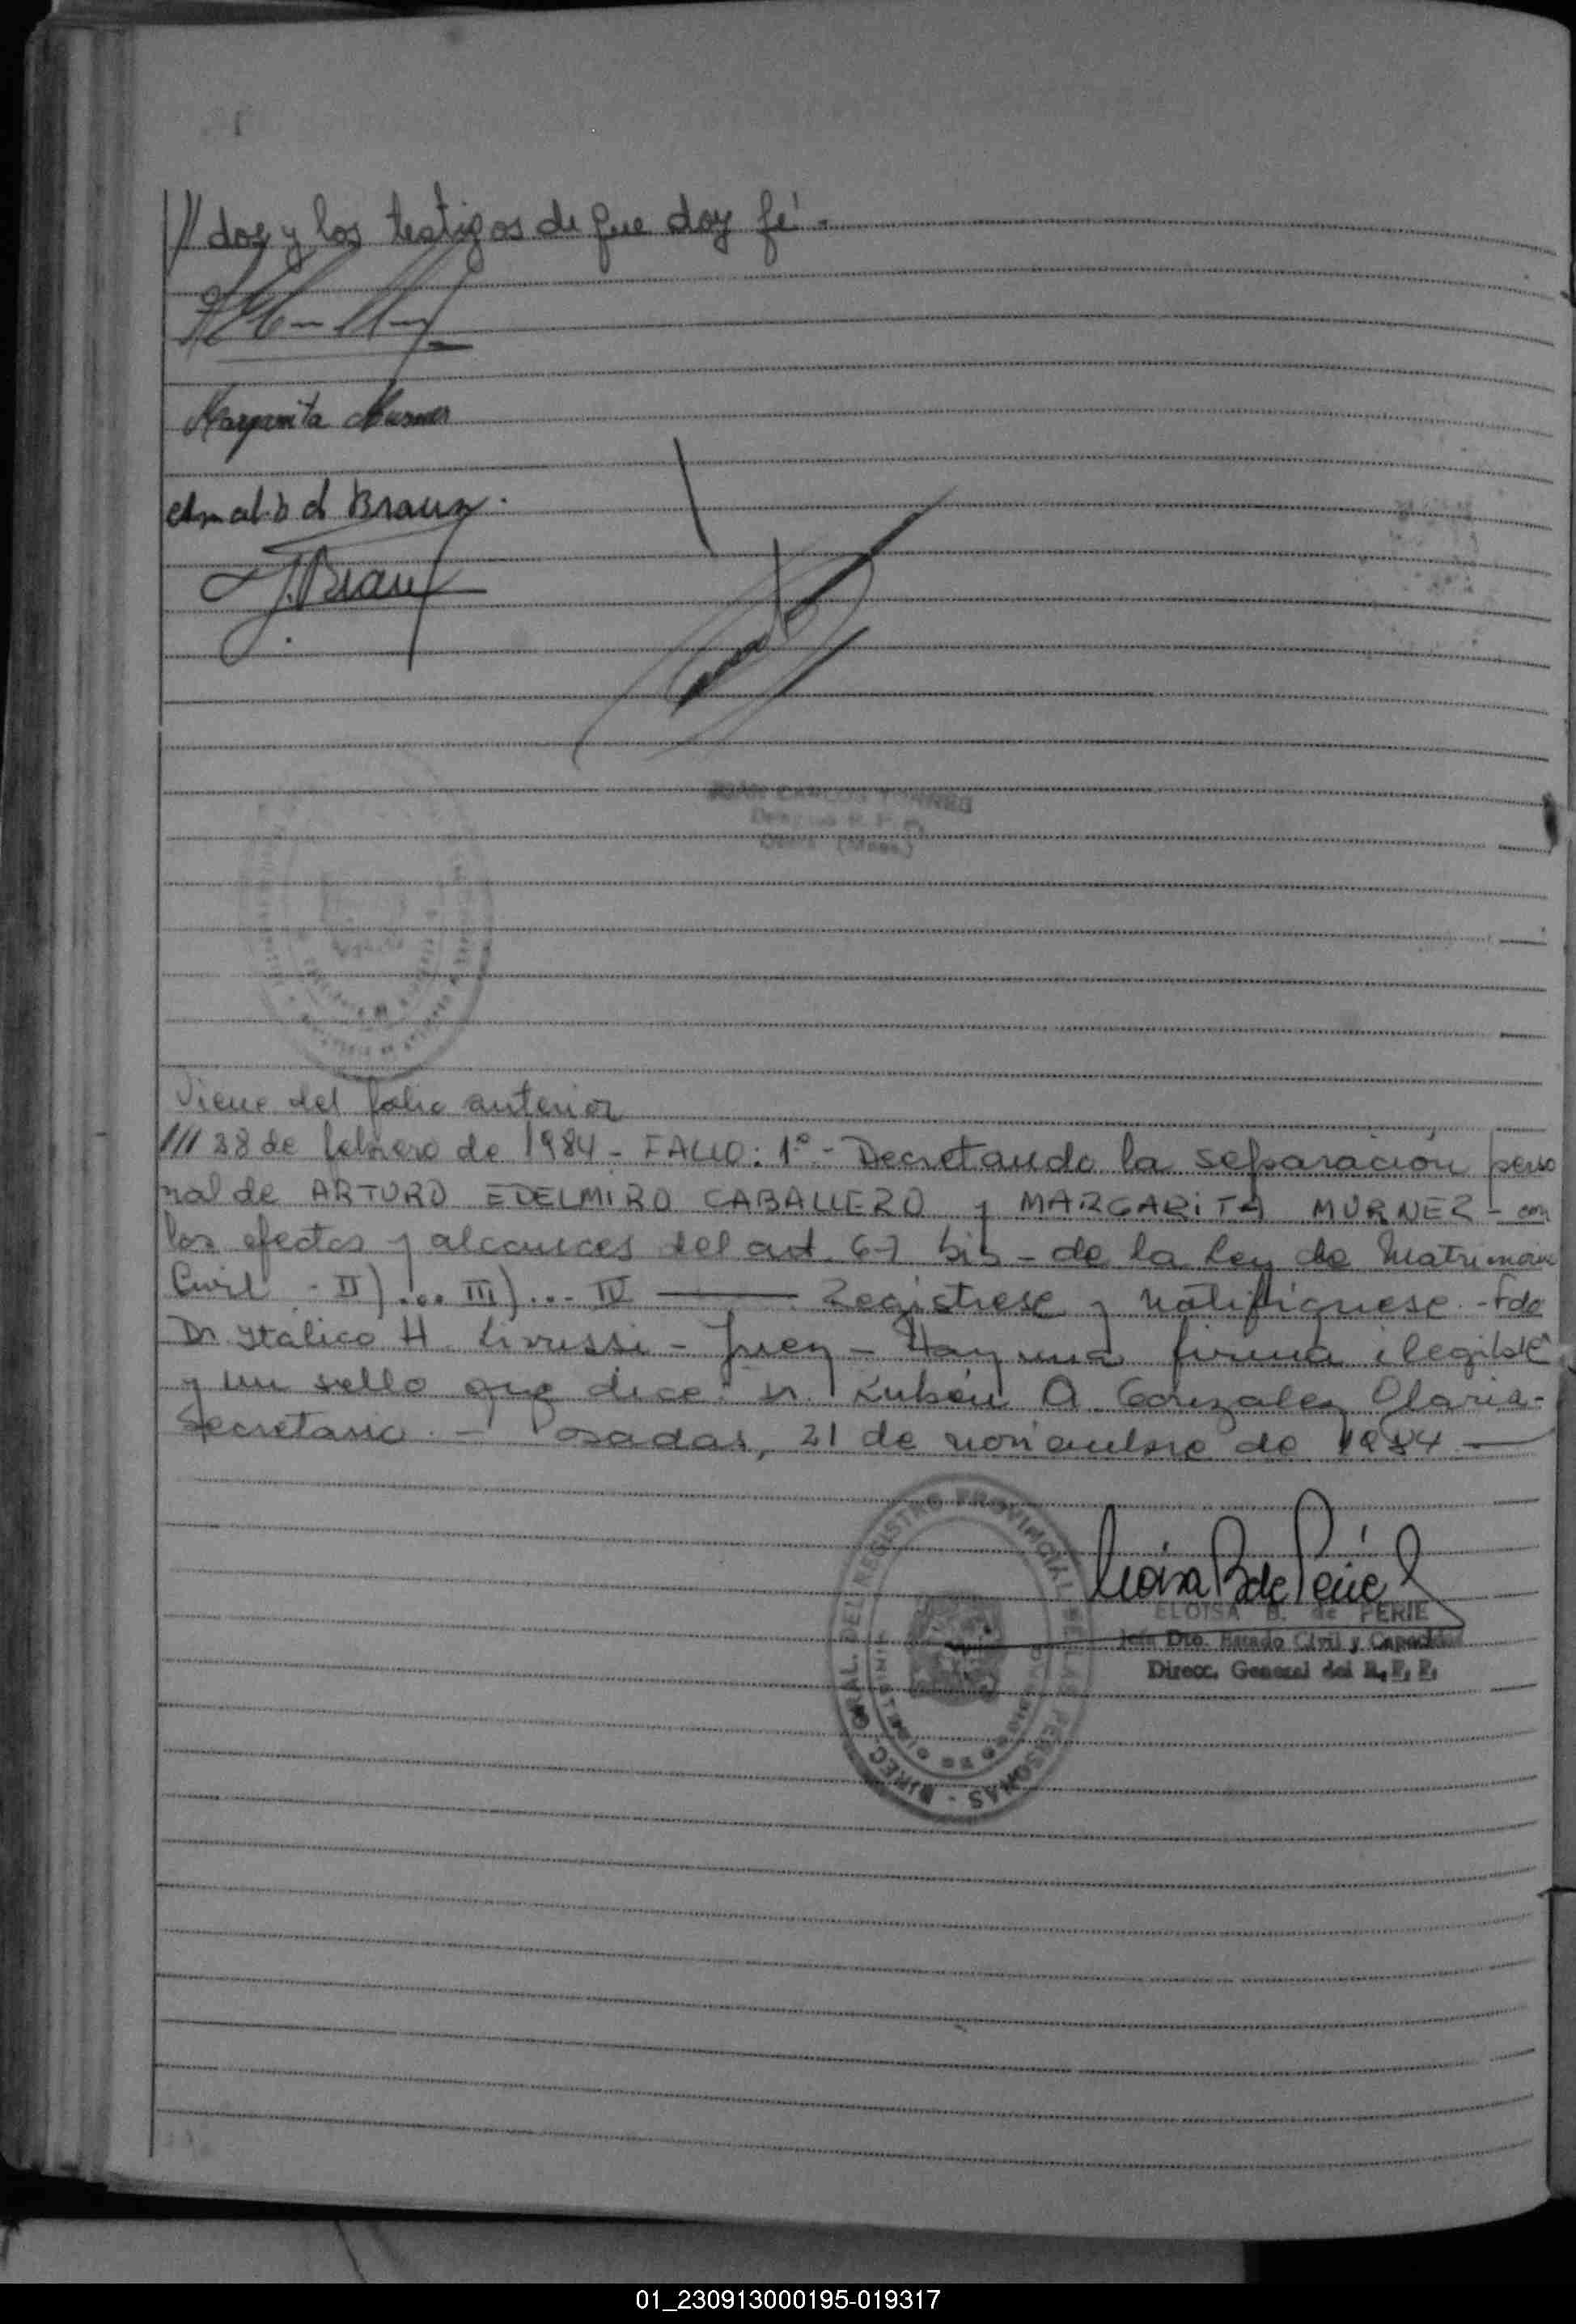 // dos y los testigos de que doy fé.-
Margarita Murner
d Braun.
J. Braun
JUAN CARLOS TORRES
Viene del folio anterior
/// 28 de febrero de 1984 - FALLO: 1° - Decretando la separación perso
nal de ARTURO EDELMIRO CABALLERO y MARGARITA MURNER - con
los efectos y alcances del art. 67 bis - de la Ley de Matrimonio
Civil - II) ... III) ... IV ——— Regístrese y notifíquese. - Fdo
Dr. Italico H. - Juez - Hay una firma ilegible
y un sello que dice: Dr. Rubén A. Gonzalez Olaria -
Secretario. - Posadas, 21 de noviembre de 1984 —
Eloisa B de Perié
ELOISA B. de PERIE
Jefa Dto. Estado Civil y Capacidad
Direcc. General del R. P. P.
DIREC. GRAL. DEL REGISTRO PROVINCIAL DE LAS PERSONAS -
01_230913000195-019317